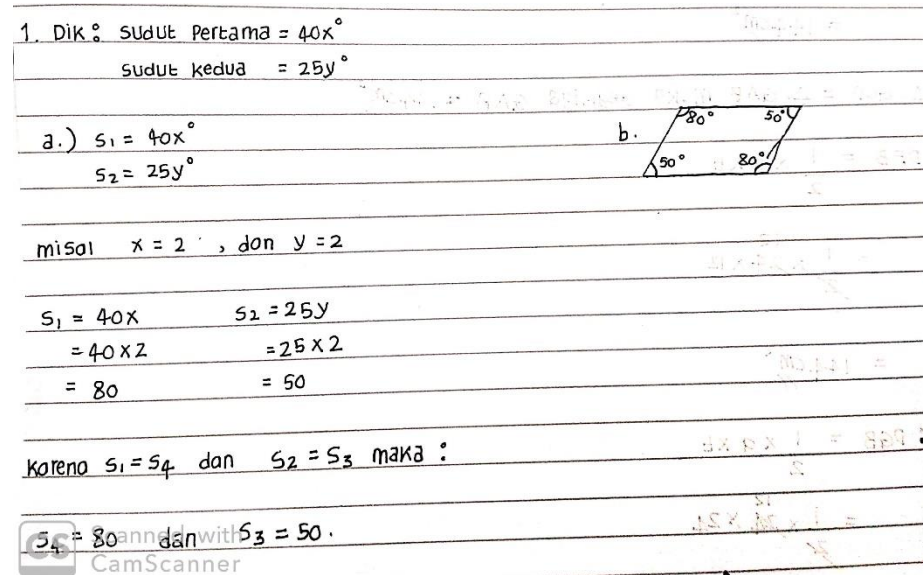 1. Dik : Sudut Pertama = 40x°
Sudut kedua = 25y°
a.) S₁ = 40x°
S₂ = 25y°
b.
80° 50°
50° 80°
misal x = 2 , dan y = 2
S₁ = 40x S₂ = 25y
= 40 x 2 = 25 x 2
= 80 = 50
karena S₁ = S₄ dan S₂ = S₃ maka :
S₄ = 80 dan S₃ = 50.
CS Scanned with
CamScanner